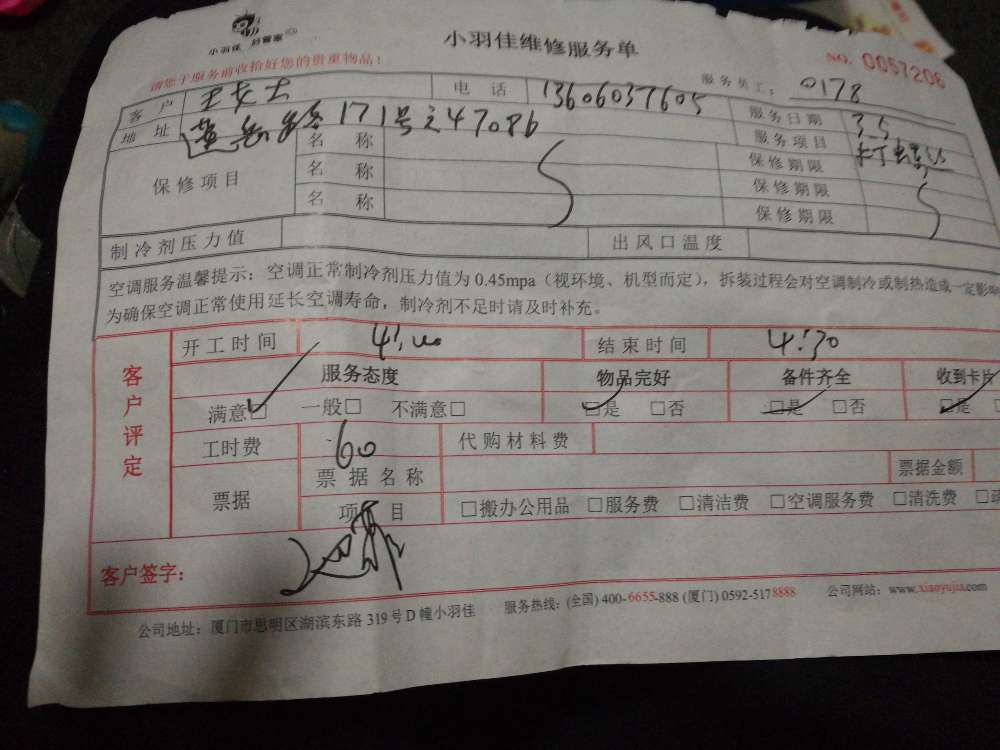 小羽佳 好管家
小羽佳维修服务单
请您于服务前收拾好您的贵重物品！
NO. 0057206
服务员工： 0178
客户 王女士 电话 13606037605 服务日期 3.5
地址 171号之4708b 服务项目
保修项目 名称 保修期限
名称 保修期限
名称 保修期限
制冷剂压力值 出风口温度
空调服务温馨提示：空调正常制冷剂压力值为 0.45mpa（视环境、机型而定），拆装过程会对空调制冷或制热造成一定影响
为确保空调正常使用延长空调寿命，制冷剂不足时请及时补充。
客户评定
开工时间 4:00 结束时间 4:30
服务态度 物品完好 备件齐全 收到卡片
满意□ 一般□ 不满意□ □是 □否 □是 □否 □是
工时费 60 代购材料费
票据 票据名称 票据金额
项目 □搬办公用品 □服务费 □清洁费 □空调服务费 □清洗费
客户签字：
公司地址：厦门市思明区湖滨东路 319 号 D 幢小羽佳 服务热线：(全国) 400-6655-888 (厦门) 0592-5178888 公司网站：www.xiaoyujia.com